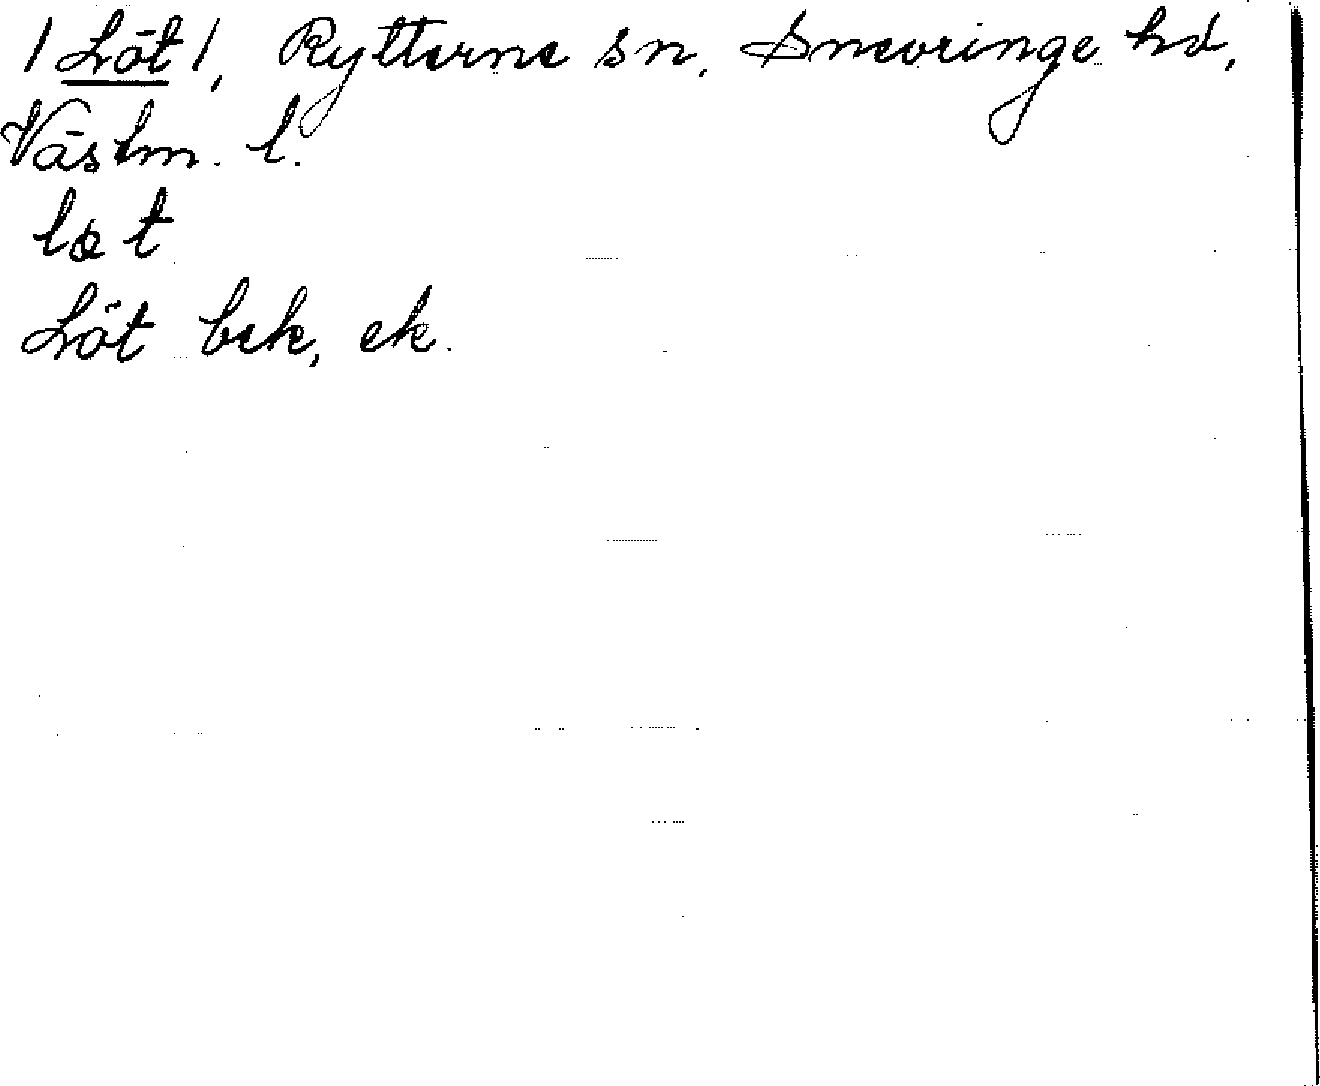 /Löt/, Rytterne sn, Snevringe hd,
Västm. l.
löt
Löt bek, ek.